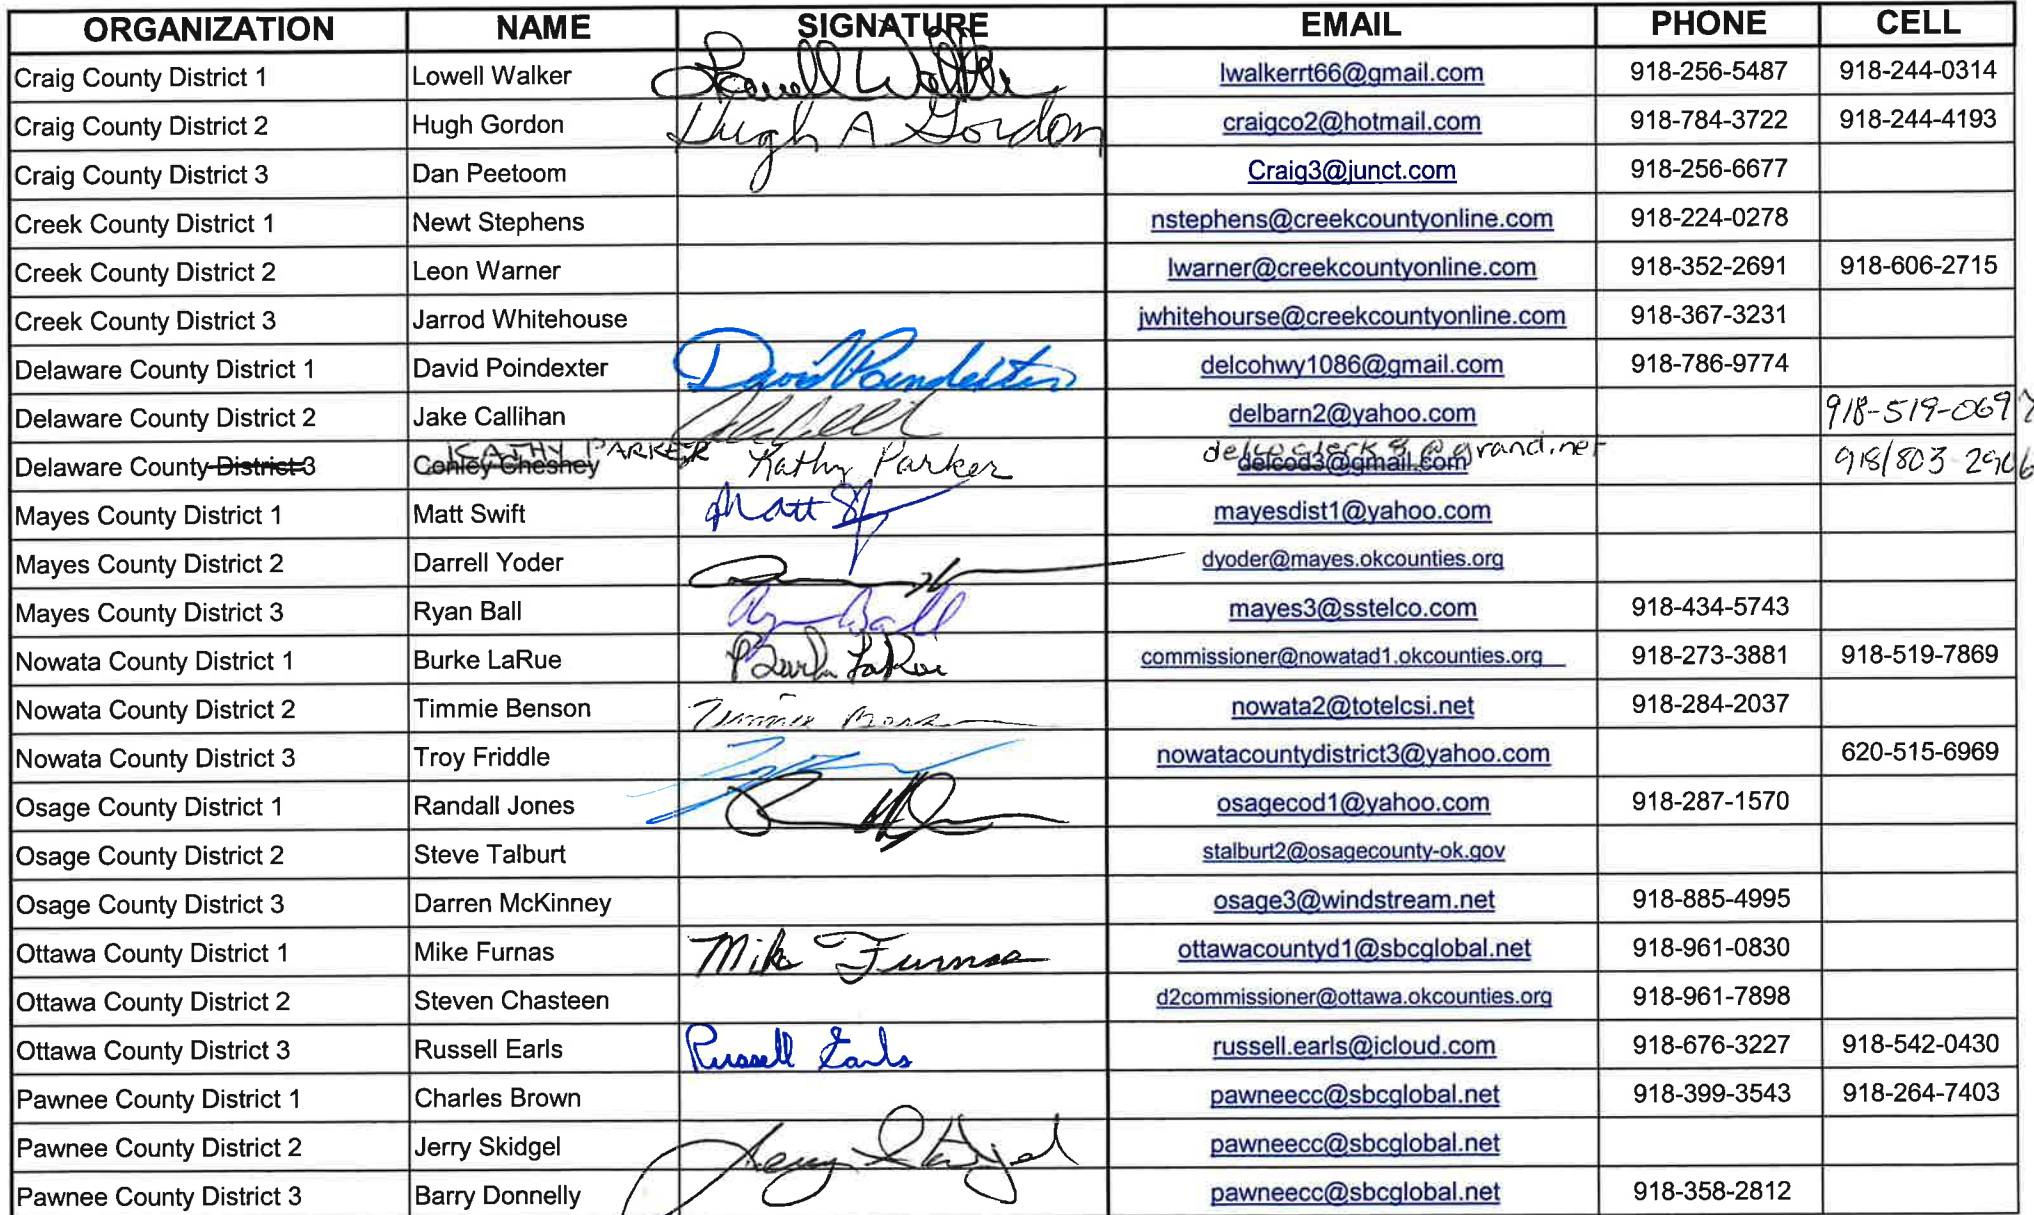 ORGANIZATION NAME SIGNATURE EMAIL PHONE CELL
Craig County District 1 Lowell Walker Lowell Walker lwalkerrt66@gmail.com 918-256-5487 918-244-0314
Craig County District 2 Hugh Gordon Hugh A Gordon craigco2@hotmail.com 918-784-3722 918-244-4193
Craig County District 3 Dan Peetoom Craig3@junct.com 918-256-6677
Creek County District 1 Newt Stephens nstephens@creekcountyonline.com 918-224-0278
Creek County District 2 Leon Warner lwarner@creekcountyonline.com 918-352-2691 918-606-2715
Creek County District 3 Jarrod Whitehouse jwhitehourse@creekcountyonline.com 918-367-3231
Delaware County District 1 David Poindexter David Poindexter delcohwy1086@gmail.com 918-786-9774
Delaware County District 2 Jake Callihan delbarn2@yahoo.com
KATHY PARKER
Delaware County District 3 Conley Cheshey Kathy Parker delcod3@gmail.com
Mayes County District 1 Matt Swift Matt mayesdist1@yahoo.com
Mayes County District 2 Darrell Yoder dyoder@mayes.okcounties.org
Mayes County District 3 Ryan Ball Ryan Ball mayes3@sstelco.com 918-434-5743
Nowata County District 1 Burke LaRue Burke LaRue commissioner@nowatad1.okcounties.org 918-273-3881 918-519-7869
Nowata County District 2 Timmie Benson Timmie Benson nowata2@totelcsi.net 918-284-2037
Nowata County District 3 Troy Friddle nowatacountydistrict3@yahoo.com 620-515-6969
Osage County District 1 Randall Jones osagecod1@yahoo.com 918-287-1570
Osage County District 2 Steve Talburt stalburt2@osagecounty-ok.gov
Osage County District 3 Darren McKinney osage3@windstream.net 918-885-4995
Ottawa County District 1 Mike Furnas Mike Furnas ottawacountyd1@sbcglobal.net 918-961-0830
Ottawa County District 2 Steven Chasteen d2commissioner@ottawa.okcounties.org 918-961-7898
Ottawa County District 3 Russell Earls Russell Earls russell.earls@icloud.com 918-676-3227 918-542-0430
Pawnee County District 1 Charles Brown pawneecc@sbcglobal.net 918-399-3543 918-264-7403
Pawnee County District 2 Jerry Skidgel Jerry Skidgel pawneecc@sbcglobal.net
Pawnee County District 3 Barry Donnelly pawneecc@sbcglobal.net 918-358-2812